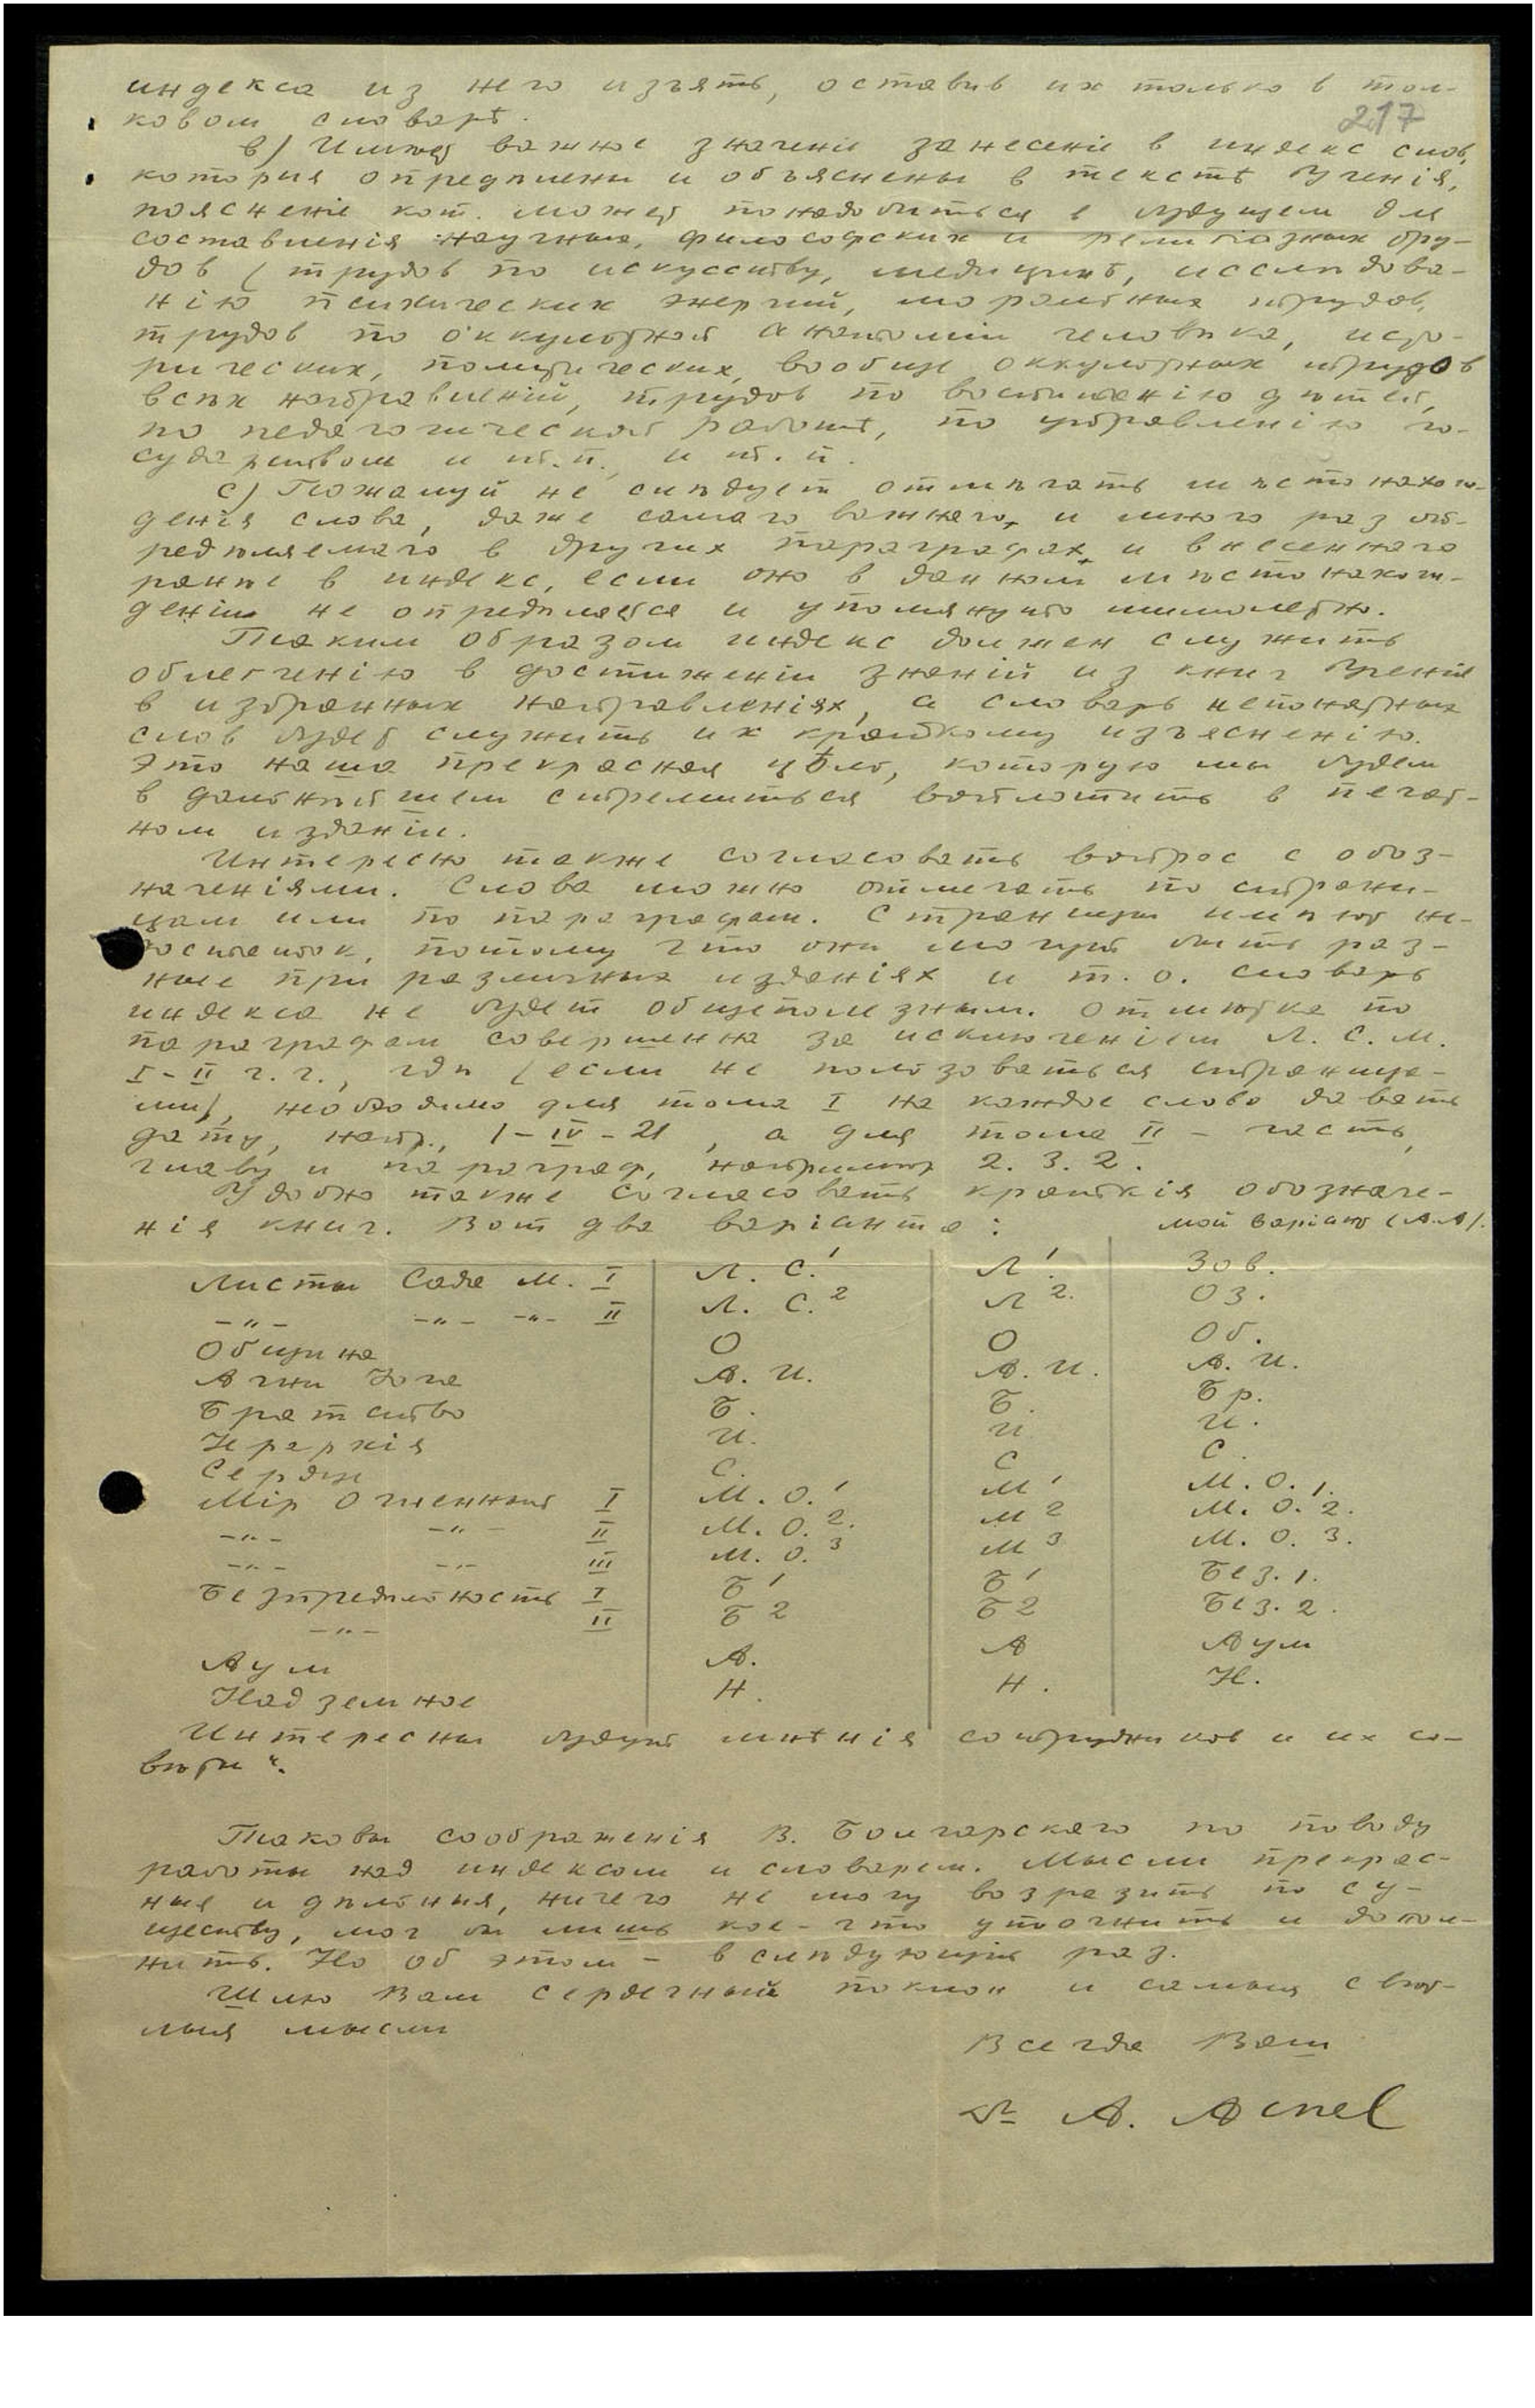 индекса из него изъять, оставив их только в тол-
ковом словарѣ.
217
в) Имѣет важное значеніе занесеніе в индекс слов,
которыя опредѣлены и объяснены в текстѣ Ученія,
поясненіе кот. может понадобиться в будущем для
составленія научных, философских и религіозных тру-
дов (трудов по искусству, медицинѣ, исслѣдова-
нію психических энергий, моральных трудов,
трудов по оккультной анатоміи человѣка, исто-
рических, политических, вообще оккультных трудов
всѣх направленій, трудов по воспитанію дѣтей,
по педагогической работѣ, по управленію го-
сударством и т.п., и т.п.
с) Пожалуй не слѣдует отмѣчать мѣстонахож-
денія слова, даже самаго важнаго, и много раз оп-
редѣляемаго в других параграфах, и внесеннаго
ранѣе в индекс, если оно в данном мѣстонахож-
деніи не опредѣляется и упомянуто мимолетно.
Таким образом индекс должен служить
облегченію в достиженіи знаній из книг Ученія
в избранных направленіях, а словарь непонятных
слов будет служить их краткому изъясненію.
Это наша прекрасная цѣль, которую мы будем
в дальнѣйшем стремиться воплотить в печат-
ном изданіи.
Интересно также согласовать вопрос с обоз-
наченіями. Слова можно отмечать по страни-
цам или по параграфам. Страницы имѣют не-
достаток, потому что они могут быть раз-
ные при различных изданіях и т.о. словарь
индекса не будет общеполезным. Отмѣтка по
параграфам совершенна за исключеніем Л. С. М.
I-II г.г., гдѣ (если не пользоваться страница-
ми), необходимо для тома I на каждое слово давать
дату, напр., 1-IV-21, а для тома II - часть,
главу и параграф, напримѣр 2. 3. 2.
Удобно также согласовать краткія обозначе-
нія книг. Вот два варіанта: мой варіант (А.А).
Листы Сада М. I Л. С.1 Л1. Зов.
-"- -"- -"- II Л. С.2 Л2. Оз.
Община О О Об.
Агни Йога А. И. А. И. А. И.
Братство Б. Б. Бр.
Іерархія И. И И.
Сердце С. С С.
Мір Огненный I М. О.1 М1 М. О. 1.
-"- -"- II М. О.2. М2 М. О. 2.
-"- -"- III М. О.3 М3 М. О. 3.
Безпредѣльность I Б1 Б1 Без. 1.
-"- II Б2 Б2 Без. 2.
Аум А. А Аум
Надземное Н. Н. Н.
Интересны будут мнѣнія сотрудников и их со-
вѣты".
Таковы соображенія В. Болгарскаго по поводу
работы над индексом и словарем. Мысли прекрас-
ныя и дѣльныя, ничего не могу возразить по су-
ществу, мог бы лишь кое-что уточнить и допол-
нить. Но об этом - в слѣдующій раз.
Шлю Вам сердечный поклон и самыя свѣт-
лыя мысли
Всегда Ваш
Dr А. Асеев